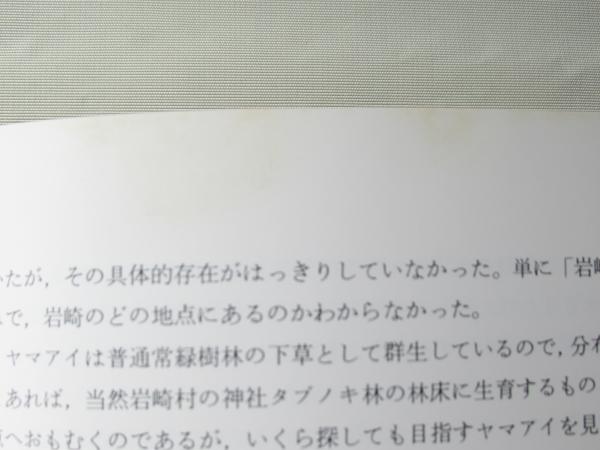 たが，その具体的存在がはっきりしていなかった。単に「岩崎
で，岩崎のどの地点にあるのかわからなかった。
ヤマアイは普通常緑樹林の下草として群生しているので，分布
あれば，当然岩崎村の神社タブノキ林の林床に生育するもの
へおもむくのであるが，いくら探しても目指すヤマアイを見